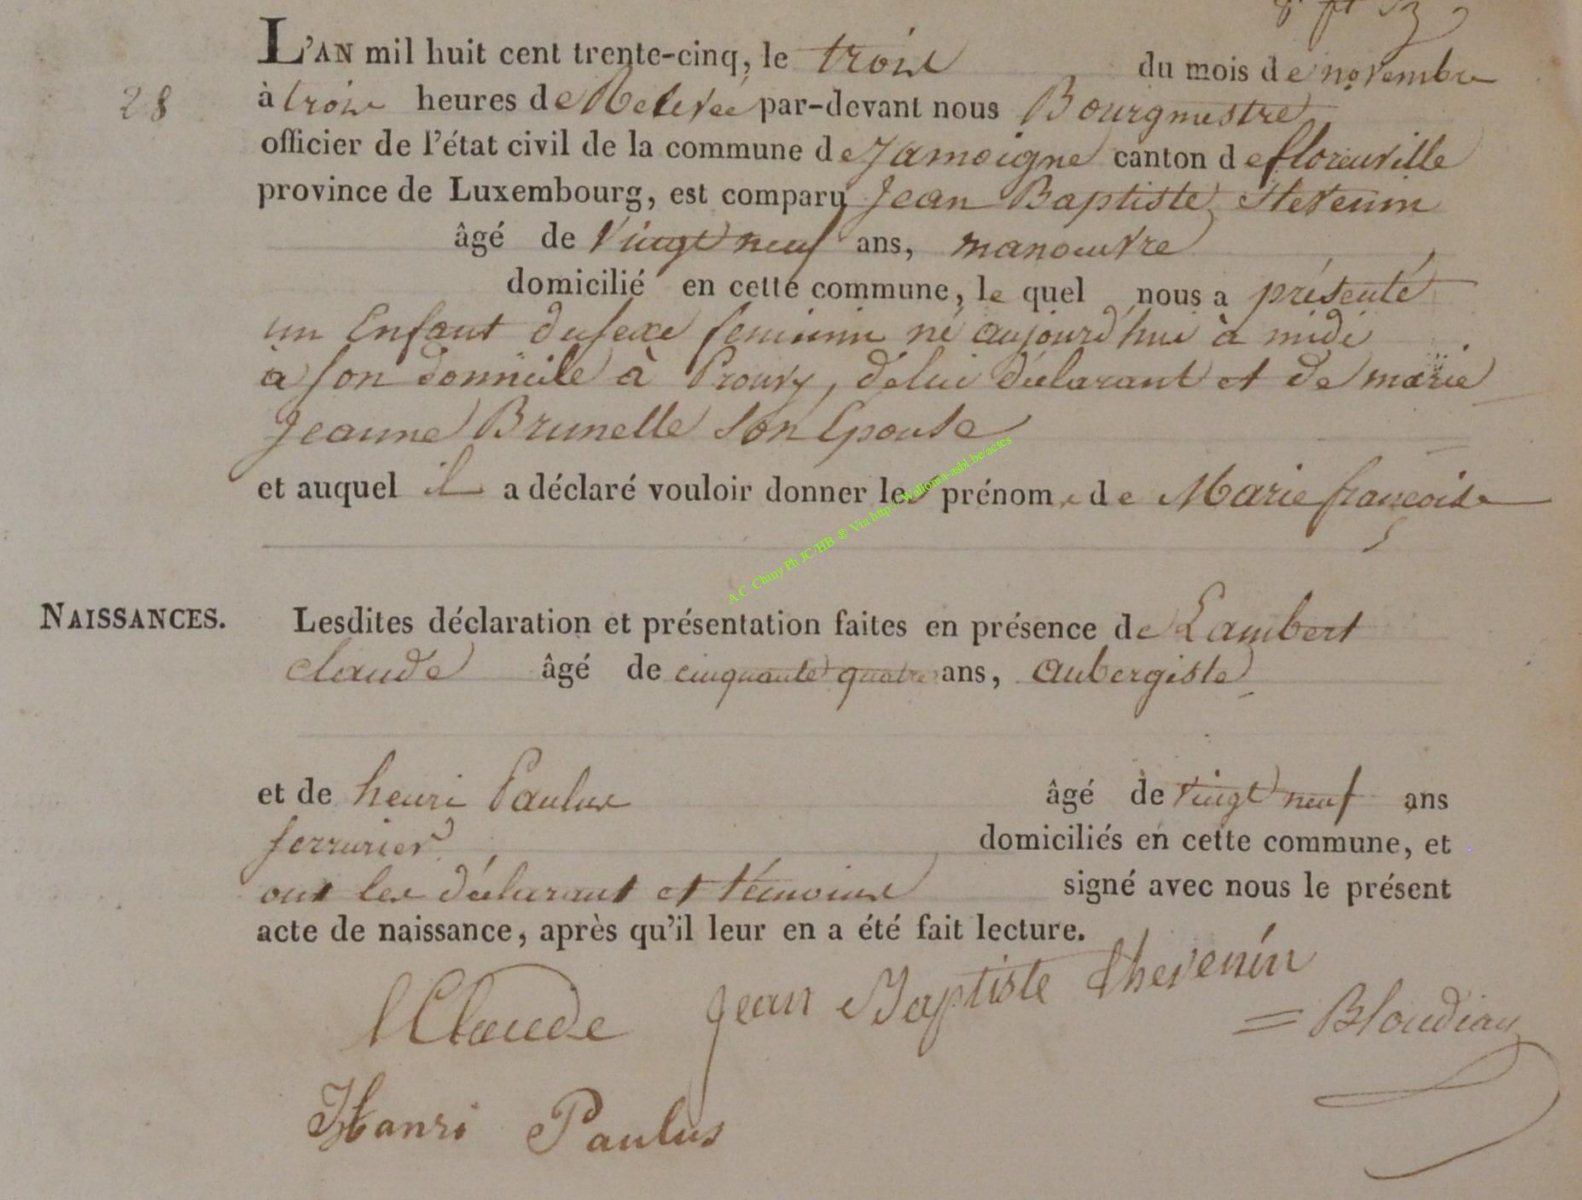 L'AN mil huit cent trente-cinq, le trois du mois de novembre
28
à trois heures de Relevee par-devant nous Bourgmestre
officier de l'état civil de la commune de Jamoigne canton de florenville
province de Luxembourg, est comparu Jean Baptiste Stevenin
âgé de Vingt neuf ans, manoeuvre
domicilié en cette commune, le quel nous a présenté
un Enfant du sexe feminin né aujourd'hui à midi
à son domicile à Prouvy, de lui déclarant et de marie
Jeanne Brunelle son Epouse
et auquel il a déclaré vouloir donner les prénoms de Marie françoise
A.C. Chiny Ph JC/HB @ Via http://wallonia-asbl.be/actes
NAISSANCES.
Lesdites déclaration et présentation faites en présence de Lambert
claude âgé de cinquante quatre ans, aubergiste
et de henri Paulus âgé de vingt neuf ans
serrurier domiciliés en cette commune, et
ont les déclarant et témoins signé avec nous le présent
acte de naissance, après qu'il leur en a été fait lecture.
LClaude Jean Baptiste thevenin
Hanri Paulus